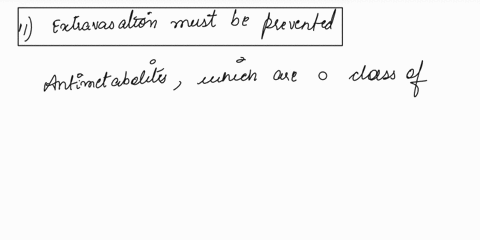 11) Extravasation must be prevented
Antimetabolites, which are a class of